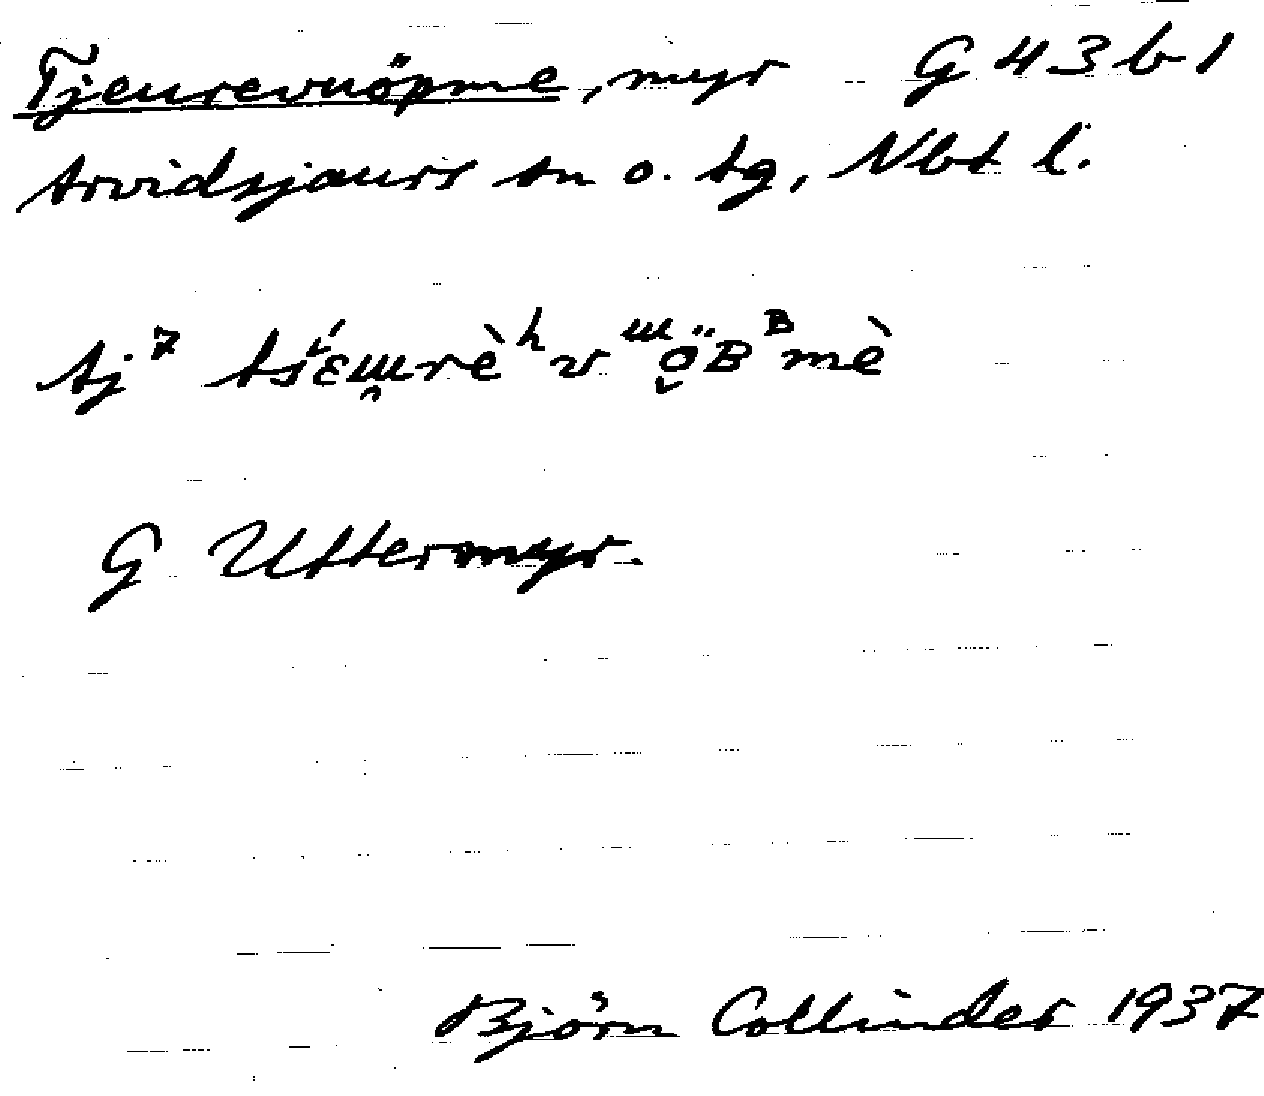 Tjeurevuöpme, myr G 43 b 1
Arvidsjaurs sn o. tg, Nbt l.
Aj⁷ tśɛ́ɯ̯rèʰv ᵚö̬Bᴮmè
G Uttermyr.
Björn Collinder 1937